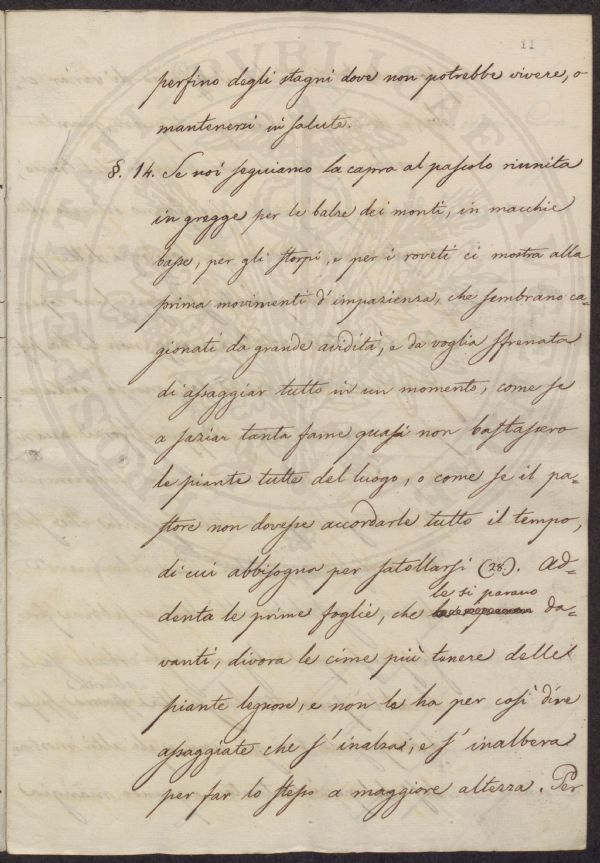 11
perfino degli stagni dove non potrebbe vivere, o
mantenersi in salute.
§. 14. Se noi seguiamo la capra al pascolo riunita
in gregge per le balse dei monti, in macchie
basse, per gli sterpi, e per i roveti ci mostra alla
prima movimenti d'impazienza, che sembrano ca-
gionati da grande avidità, e da voglia sfrenata
di assaggiar tutto in un momento, come se
a saziar tanta fame quasi non bastassero
le piante tutte del luogo, o come se il pa-
store non dovesse accordarle tutto il tempo,
di cui abbisogna per satollarsi (28.). Ad-
le si parano
denta le prime foglie, che da-
vanti, divora le cime più tenere delle
piante legnose, e non le ha per così dire
assaggiate che s'inalza, e s'inalbera
per far lo stesso a maggiore altezza. Per